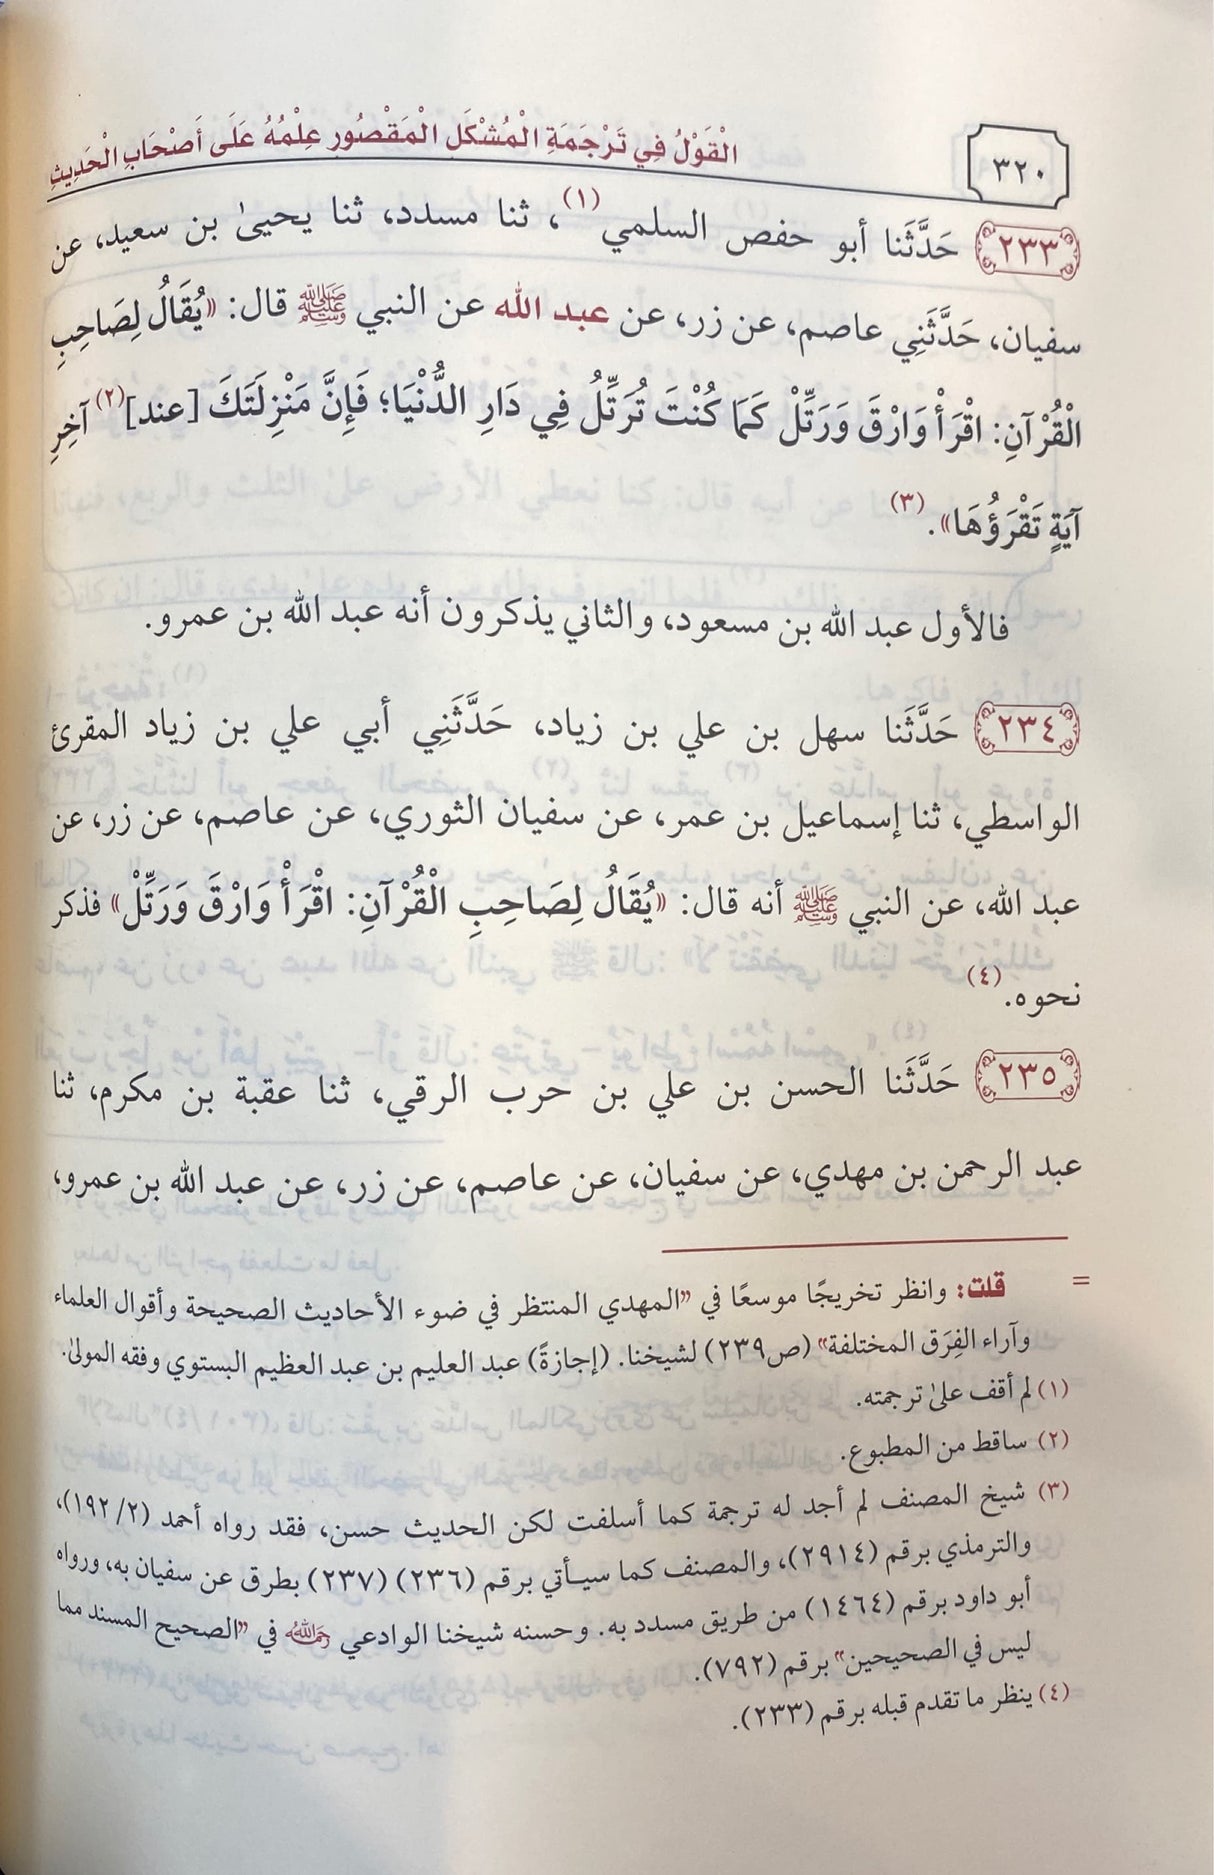 ٣٢٠
الْقَوْلُ فِي تَرْجَمَةِ الْمُشْكَلِ الْمَقْصُورِ عِلْمُهُ عَلَى أَصْحَابِ الْحَدِيثِ
٢٣٣ حَدَّثَنا أبو حفص السلمي (١)، ثنا مسدد، ثنا يحيىٰ بن سعيد، عن
سفيان، حَدَّثَنِي عاصم، عن زر، عن عبد الله عن النبي ﷺ قال: «يُقَالُ لِصَاحِبِ
الْقُرْآنِ: اقْرَأْ وَارْقَ وَرَتِّلْ كَمَا كُنْتَ تُرَتِّلُ فِي دَارِ الدُّنْيَا؛ فَإِنَّ مَنْزِلَتَكَ [عند] (٢) آخِرِ
آيَةٍ تَقْرَؤُهَا». (٣)
فالأول عبد الله بن مسعود، والثاني يذكرون أنه عبد الله بن عمرو.
٢٣٤ حَدَّثَنا سهل بن علي بن زياد، حَدَّثَنِي أبي علي بن زياد المقرئ
الواسطي، ثنا إسماعيل بن عمر، عن سفيان الثوري، عن عاصم، عن زر، عن
عبد الله، عن النبي ﷺ أنه قال: «يُقَالُ لِصَاحِبِ الْقُرْآنِ: اقْرَأْ وَارْقَ وَرَتِّلْ» فذكر
نحوه. (٤)
٢٣٥ حَدَّثَنا الحسن بن علي بن حرب الرقي، ثنا عقبة بن مكرم، ثنا
عبد الرحمن بن مهدي، عن سفيان، عن عاصم، عن زر، عن عبد الله بن عمرو،
= قلت: وانظر تخريجًا موسعًا في "المهدي المنتظر في ضوء الأحاديث الصحيحة وأقوال العلماء
وآراء الفِرَق المختلفة" (ص٢٣٩) لشيخنا. (إجازةً) عبد العليم بن عبد العظيم البستوي وفقه المولىٰ.
(١) لم أقف علىٰ ترجمته.
(٢) ساقط من المطبوع.
(٣) شيخ المصنف لم أجد له ترجمة كما أسلفت لكن الحديث حسن، فقد رواه أحمد (٢/ ١٩٢)،
والترمذي برقم (٢٩١٤)، والمصنف كما سيأتي برقم (٢٣٦) (٢٣٧) بطرق عن سفيان به، ورواه
أبو داود برقم (١٤٦٤) من طريق مسدد به. وحسنه شيخنا الوادعي رحمه الله في "الصحيح المسند مما
ليس في الصحيحين" برقم (٧٩٢).
(٤) ينظر ما تقدم قبله برقم (٢٣٣).